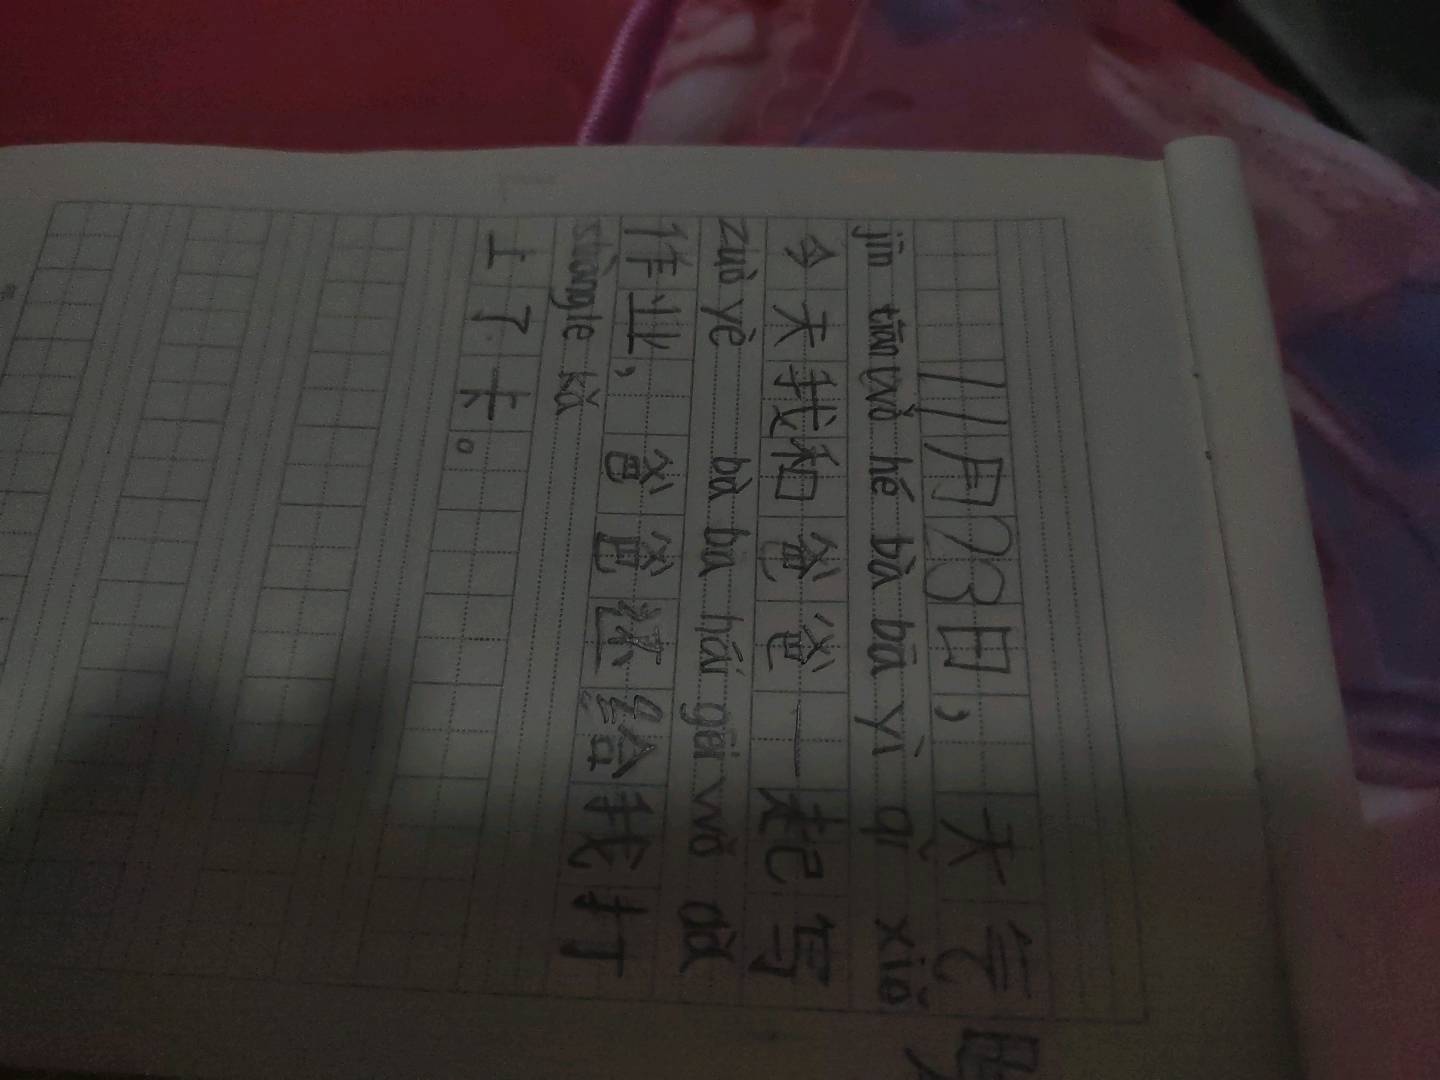 11月28日，天气晴
jīn tiān wǒ hé bà bā yì qǐ xiě
今天我和爸爸一起写
zuò yè bà ba hái gěi wǒ dǎ
作业，爸爸还给我打
shàngle kǎ
上了卡。